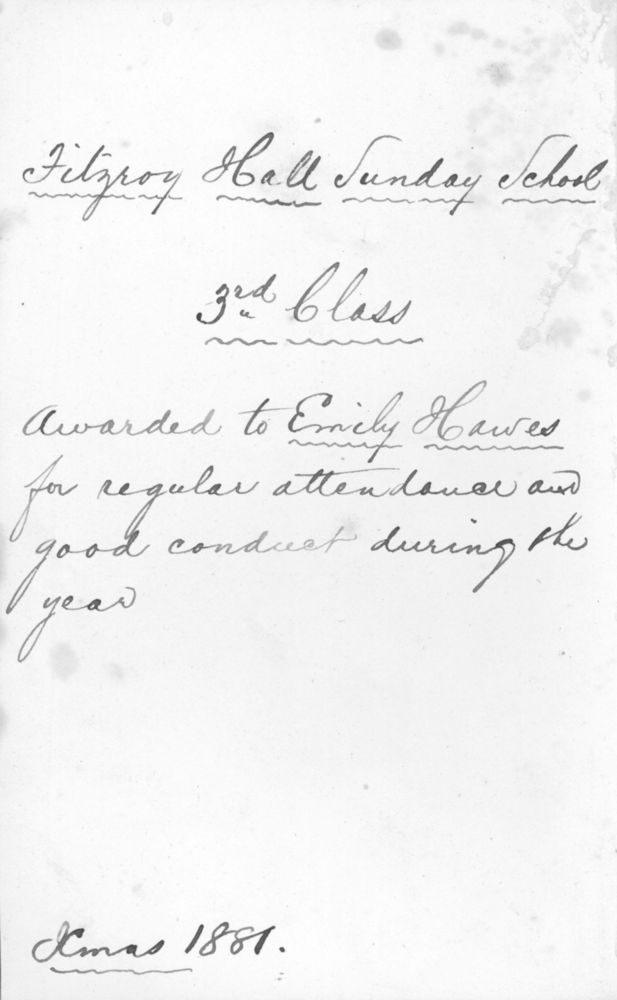 Fitzroy Hall Sunday School
3rd Class
Awarded to Emily Hawes
for regular attendance and
good conduct during the
year
Xmas 1881.